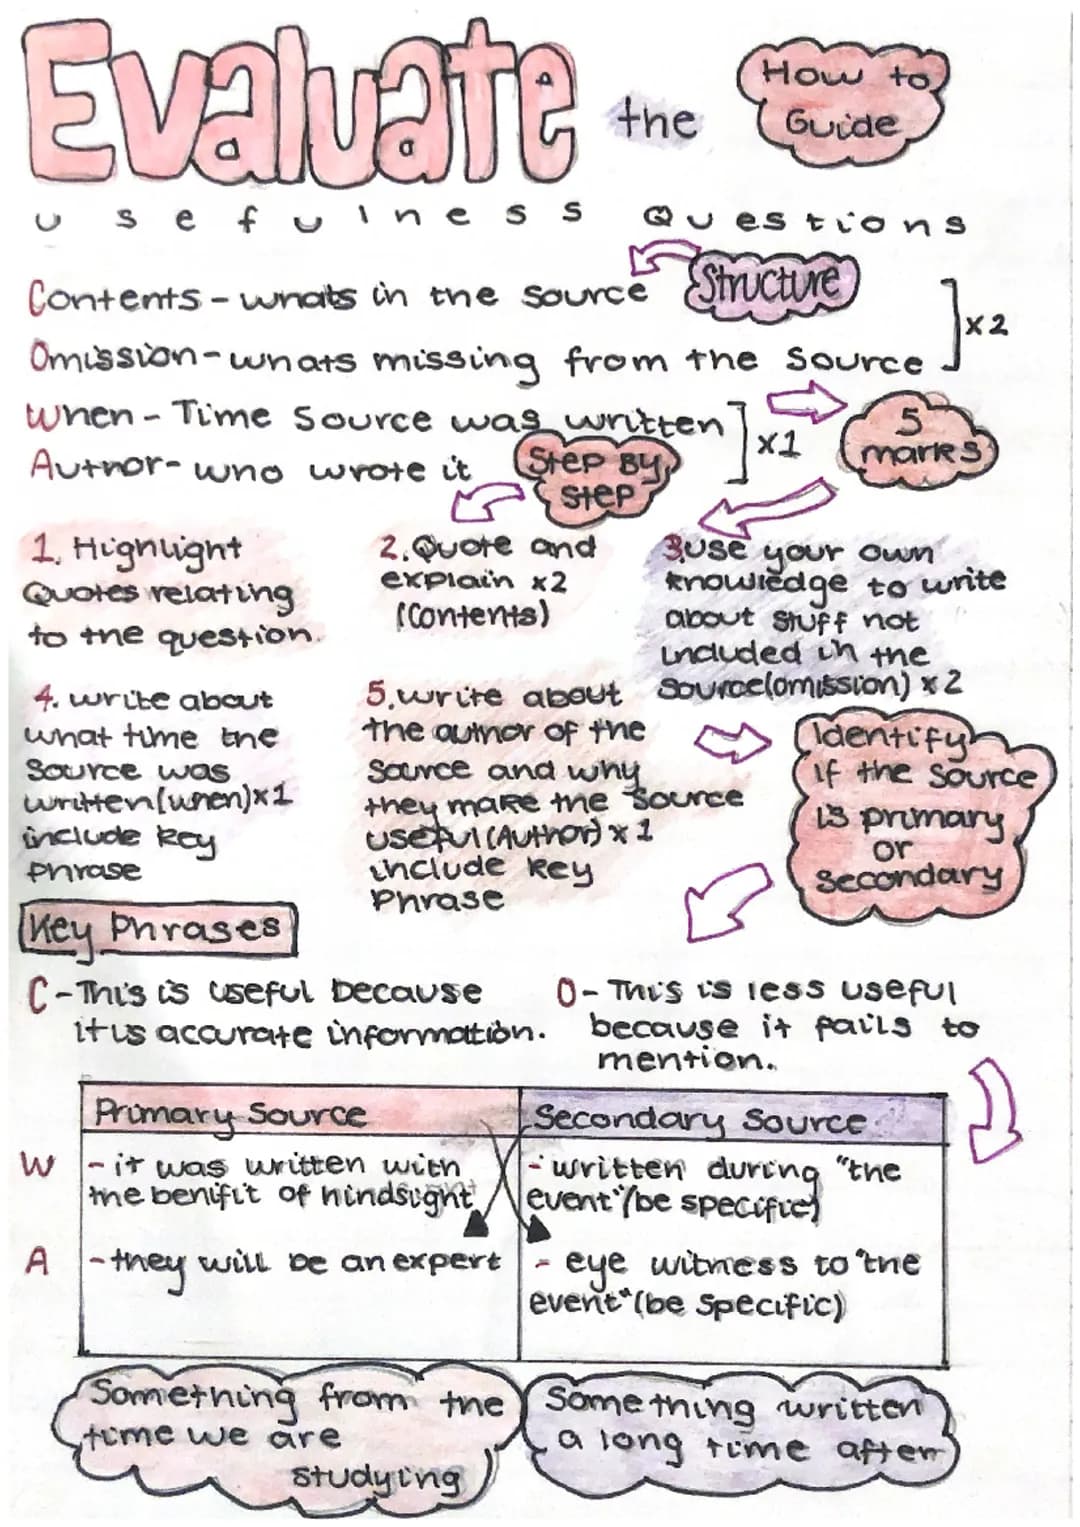 Evaluate the How to
Guide
usefulness Questions
Structure
Contents - whats in the source
Omission - whats missing from the source
x2
When - Time source was written
Author - who wrote it
x1
5
marks
Step By
Step
1. Highlight
Quotes relating
to the question.
2. Quote and
explain x2
(Contents)
3. use your own
knowledge to write
about stuff not
included in the
source(omission) x2
4. write about
what time the
source was
written(when)x1
include key
phrase
5. write about
the author of the
source and why
they make the source
useful(Author) x1
include key
Phrase
Identify
if the source
is primary
or
secondary
Key Phrases
C - This is useful because
it is accurate information.
O - This is less useful
because it fails to
mention.
Primary Source
Secondary Source
W
- it was written with
the benifit of hindsight
- written during "the
event"(be specific)
A
- they will be an expert
- eye witness to "the
event"(be specific)
Something from the
time we are
studying
Something written
a long time after